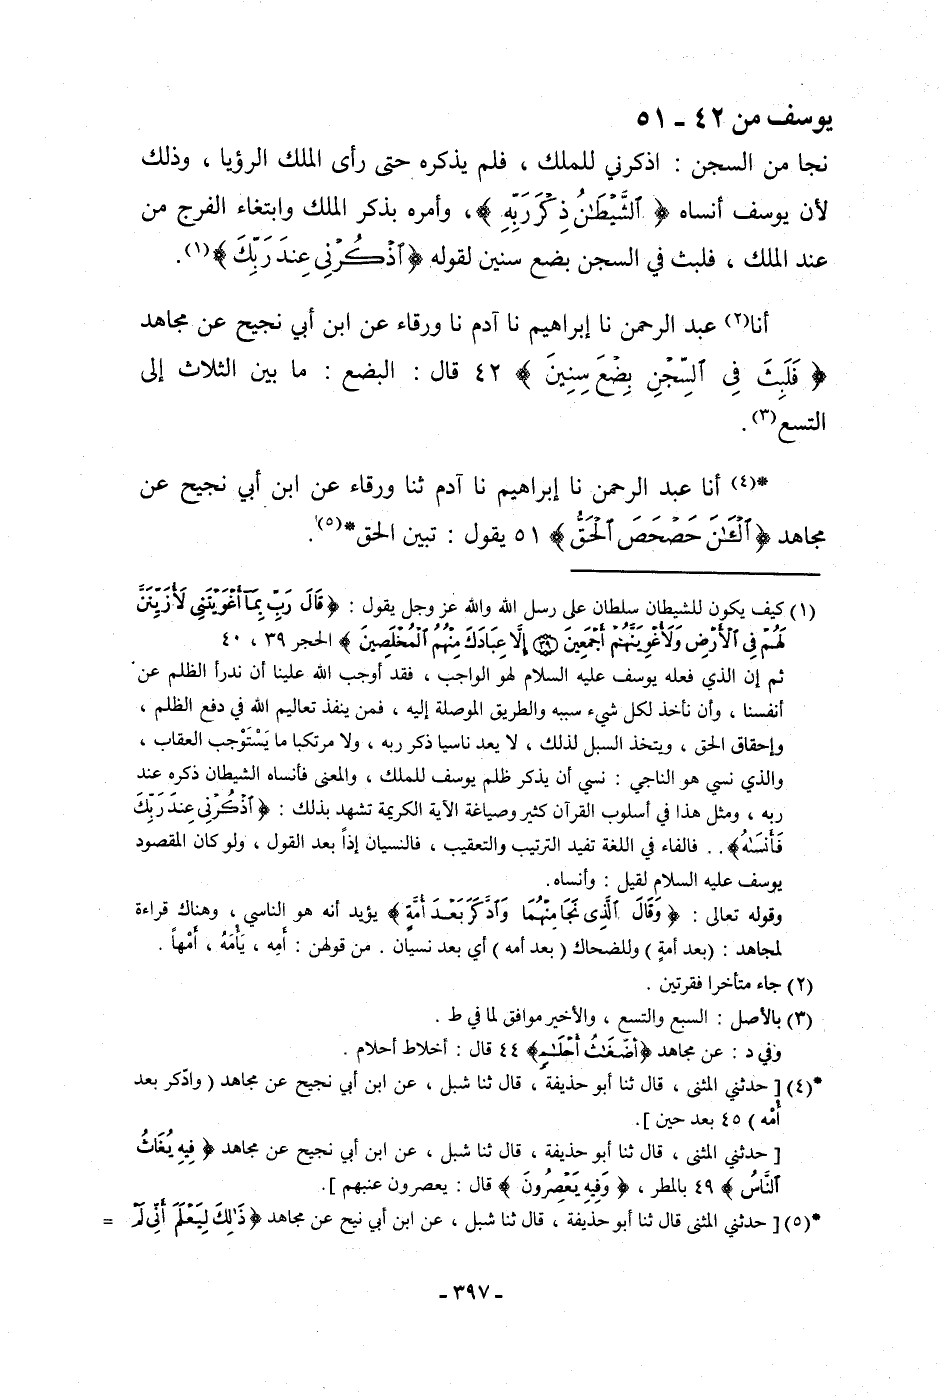 يوسف من ٤٢ ـ ٥١
نجا من السجن : اذكرني للملك ، فلم يذكره حتى رأى الملك الرؤيا ، وذلك
لأن يوسف أنساه ﴿ ٱلشَّيْطَٰنُ ذِكْرَ رَبِّهِۦ ﴾، وأمره بذكر الملك وابتغاء الفرج من
عند الملك ، فلبث في السجن بضع سنين لقوله ﴿ٱذْكُرْنِى عِندَ رَبِّكَ﴾(١).
أنا(٢) عبد الرحمن نا إبراهيم نا آدم نا ورقاء عن ابن أبي نجيح عن مجاهد
﴿ فَلَبِثَ فِى ٱلسِّجْنِ بِضْعَ سِنِينَ ﴾ ٤٢ قال : البضع : ما بين الثلاث إلى
التسع(٣).
*(٤) أنا عبد الرحمن نا إبراهيم نا آدم ثنا ورقاء عن ابن أبي نجيح عن
مجاهد ﴿ٱلْـَٰٔنَ حَصْحَصَ ٱلْحَقُّ﴾ ٥١ يقول : تبين الحق*(٥).
(١) كيف يكون للشيطان سلطان على رسل الله والله عز وجل يقول : ﴿قَالَ رَبِّ بِمَآ أَغْوَيْتَنِى لَأُزَيِّنَنَّ
لَهُمْ فِى ٱلْأَرْضِ وَلَأُغْوِيَنَّهُمْ أَجْمَعِينَ (٣٩) إِلَّا عِبَادَكَ مِنْهُمُ ٱلْمُخْلَصِينَ ﴾ الحجر ٣٩ ، ٤٠
ثم إن الذي فعله يوسف عليه السلام لهو الواجب ، فقد أوجب الله علينا أن ندرأ الظلم عن
أنفسنا ، وأن نأخذ لكل شيء سببه والطريق الموصلة إليه ، فمن ينفذ تعاليم الله في دفع الظلم ،
وإحقاق الحق ، ويتخذ السبل لذلك ، لا يعد ناسيا ذكر ربه ، ولا مرتكبا ما يَسْتَوْجب العقاب ،
والذي نسي هو الناجي : نسي أن يذكر ظلم يوسف للملك ، والمعنى فأنساه الشيطان ذكره عند
ربه ، ومثل هذا في أسلوب القرآن كثير وصياغة الآية الكريمة تشهد بذلك : ﴿ ٱذْكُرْنِى عِندَ رَبِّكَ
فَأَنسَىٰهُ﴾.. فالفاء في اللغة تفيد الترتيب والتعقيب ، فالنسيان إذاً بعد القول ، ولو كان المقصود
يوسف عليه السلام لقيل : وأنساه.
وقوله تعالى : ﴿ وَقَالَ ٱلَّذِى نَجَا مِنْهُمَا وَٱدَّكَرَ بَعْدَ أُمَّةٍ ﴾ يؤيد أنه هو الناسي ، وهناك قراءة
لمجاهد : (بعد أمةٍ ) وللضحاك ( بعد أمه ) أي بعد نسيان . من قولهن : أمِه ، يَأْمَهُ ، أَمْهاً .
(٢) جاء متأخرا فقرتين .
(٣) بالأصل : السبع والتسع ، والأخير موافق لما في ط .
وفي د : عن مجاهد ﴿أَضْغَٰثُ أَحْلَٰمٍ﴾ ٤٤ قال : أخلاط أحلام .
*(٤) [ حدثني المثنى ، قال ثنا أبو حذيفة ، قال ثنا شبل ، عن ابن أبي نجيح عن مجاهد ( وادّكر بعد
أُمْه ) ٤٥ بعد حين ].
[ حدثني المثنى ، قال ثنا أبو حذيفة ، قال ثنا شبل ، عن ابن أبي نجيح عن مجاهد ﴿ فِيهِ يُغَاثُ
ٱلنَّاسُ ﴾ ٤٩ بالمطر ، ﴿ وَفِيهِ يَعْصِرُونَ ﴾ قال : يعصرون عنبهم ].
*(٥) [ حدثني المثنى قال ثنا أبو حذيفة ، قال ثنا شبل ، عن ابن أبي نيح عن مجاهد ﴿ذَٰلِكَ لِيَعْلَمَ أَنِّى لَمْ =
ـ ٣٩٧ ـ